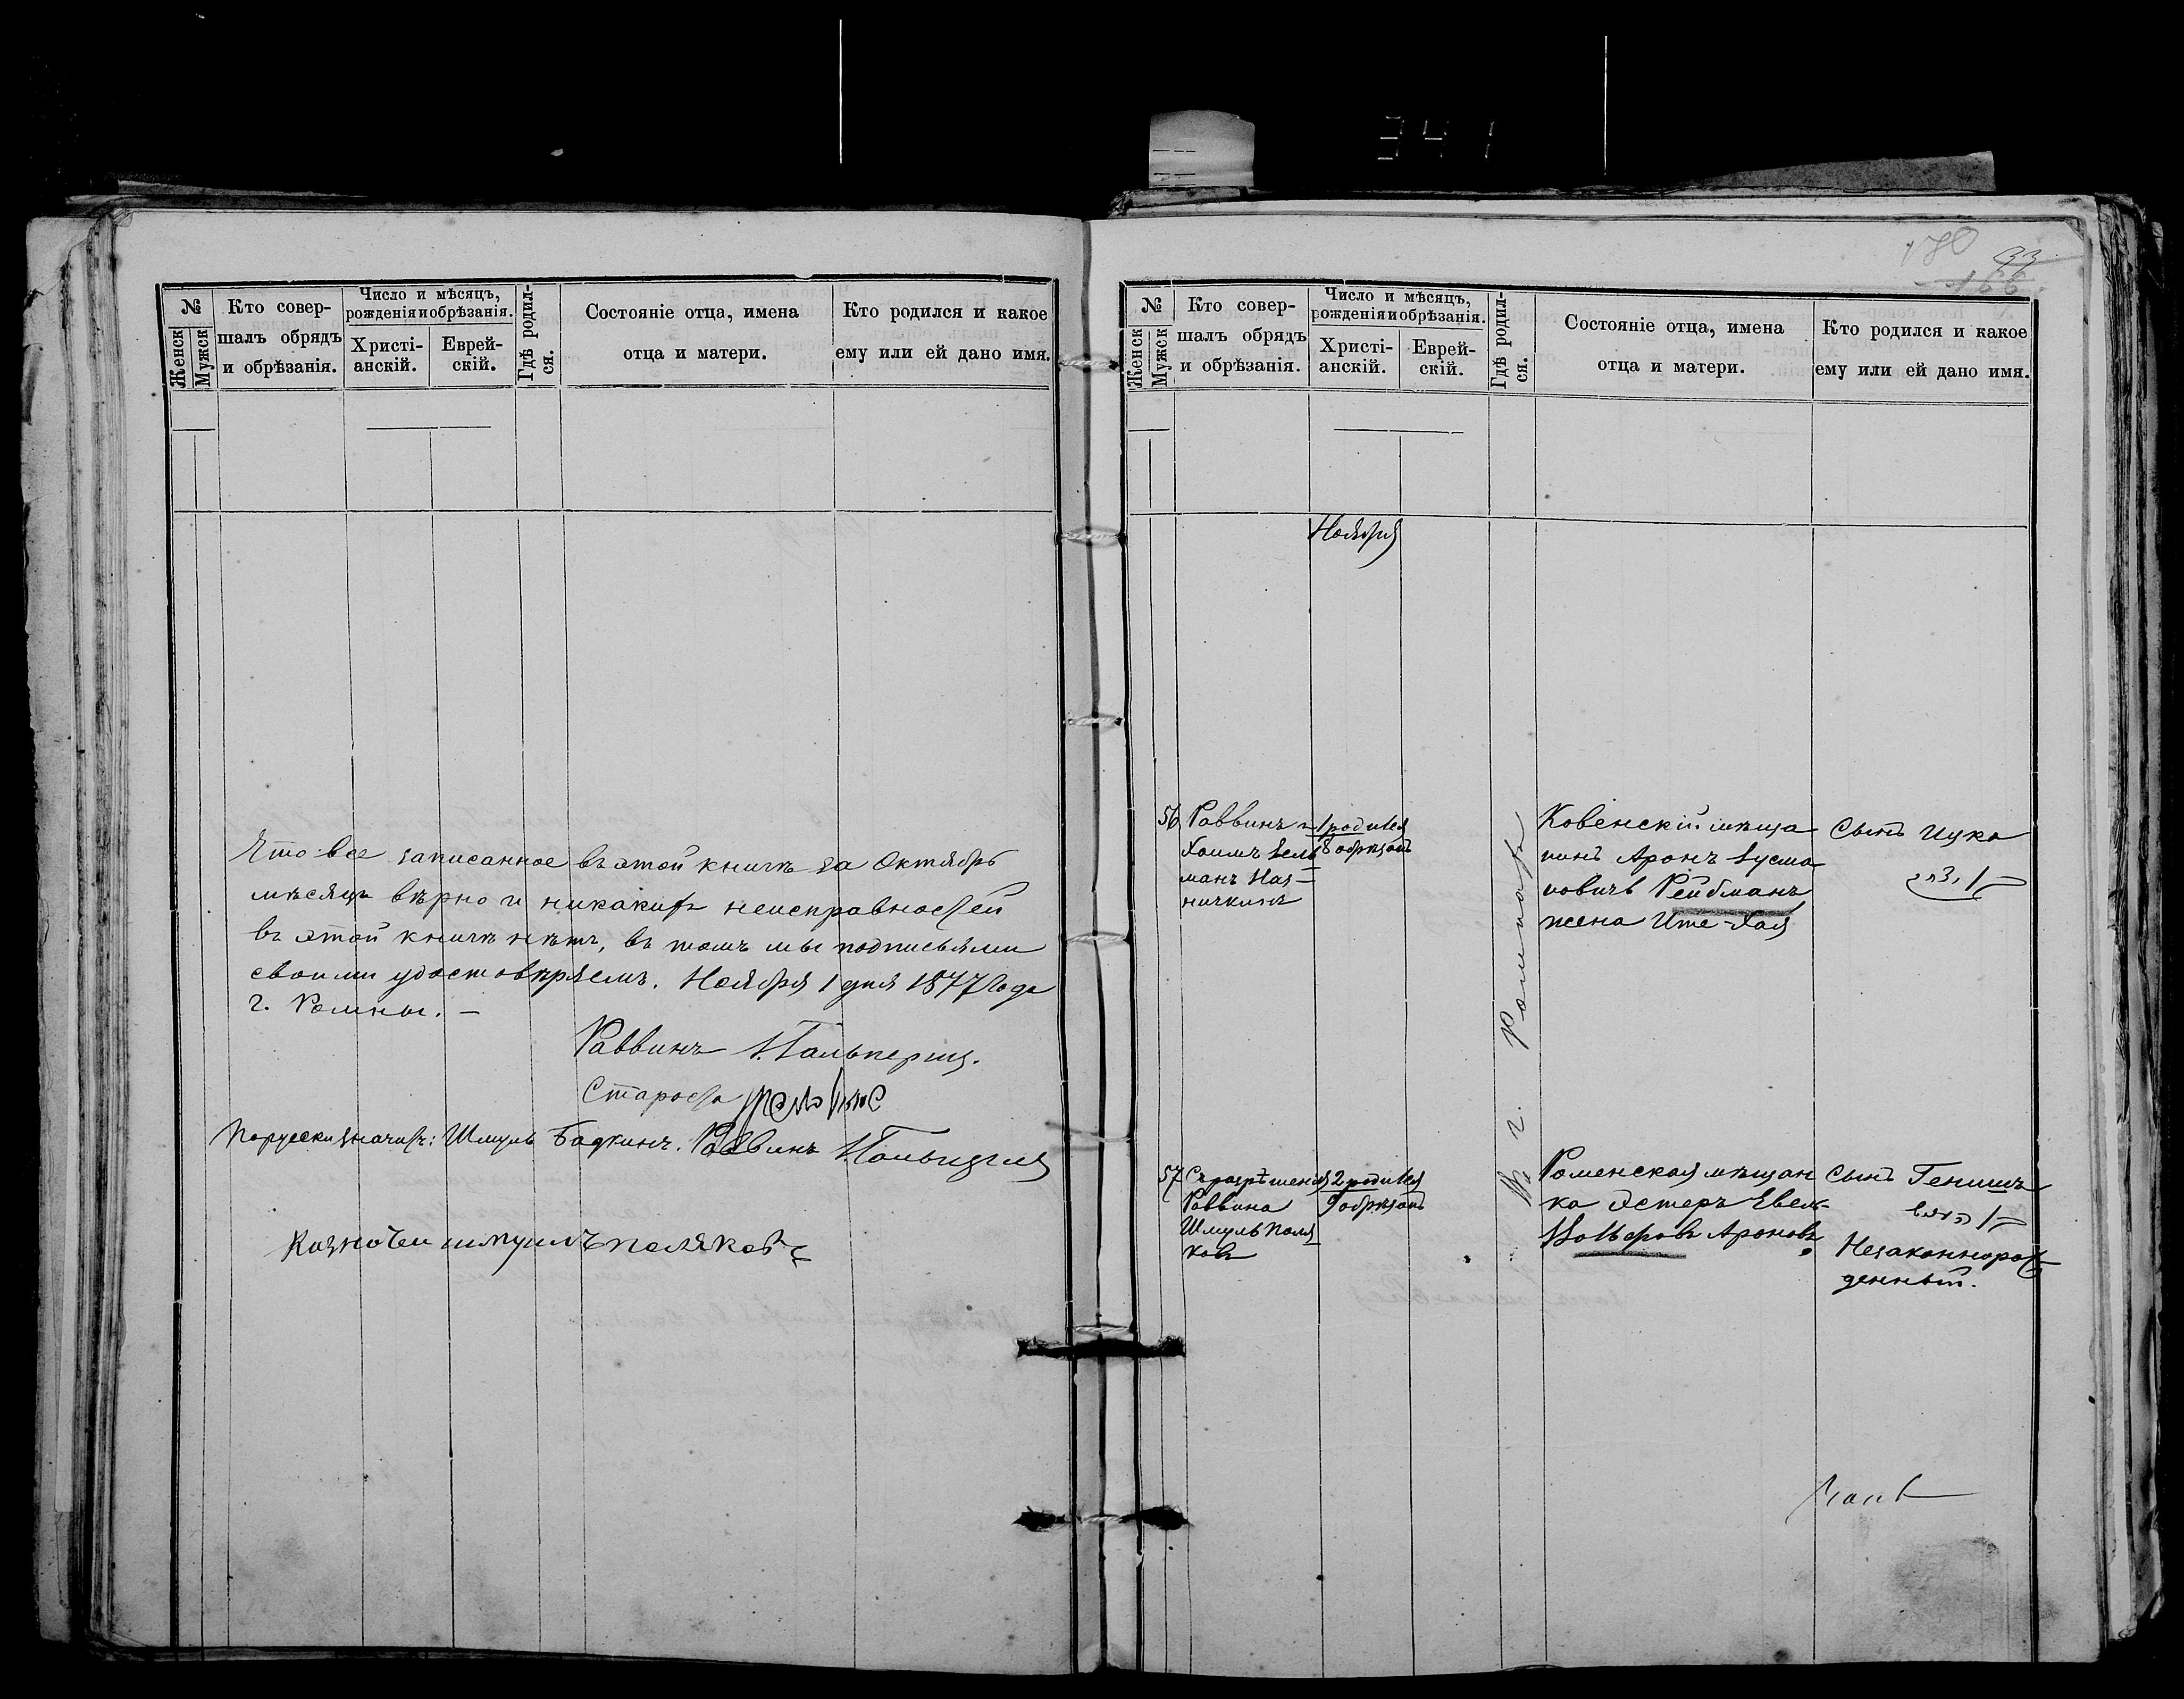 341
№
Женск
Мужск
Кто совер-
шалъ обрядъ
и обрѣзанія.
Число и мѣсяцъ,
рожденія и обрѣзанія.
Христі-
анскій.
Еврей-
скій.
Гдѣ родил-
ся.
Состояніе отца, имена
отца и матери.
Кто родился и какое
ему или ей дано имя.
Что все записанное въ этой книгѣ за Октябрь
мѣсяцъ вѣрно и никакихъ неисправностей
въ этой книгѣ нѣтъ, въ томъ мы подписьями
своими удостовѣряемъ. Ноября 1 дня 1877 года
г. Ромны. —
Раввинъ
Староста
По русски значитъ: Шмуль Бадкинъ. Раввинъ
Казначеи шмуилъ поляковъ
180
93
166
№
Женск
Мужск
Кто совер-
шалъ обрядъ
и обрѣзанія.
Число и мѣсяцъ,
рожденія и обрѣзанія.
Христі-
анскій.
Еврей-
скій.
Гдѣ родил-
ся.
Состояніе отца, имена
отца и матери.
Кто родился и какое
ему или ей дано имя.
Ноября
Въ г. Ромнахъ
56
Раввинъ и
Хаимъ Зель
манъ
1 родился
8 обрѣзанъ
Ковенскій мѣща
нинъ Аронъ Зусма
новичъ Рейбманъ
жена Ите-Хая
Сынъ Ицка
57
Съ разрѣшенія
Раввина
Шмуль Поля
ковъ
2 родился
9 обрѣзанъ
Роменская мѣщан
ка Эстеръ Евель
Ароновъ
Сынъ Генишъ
Незаконнорож
денный.